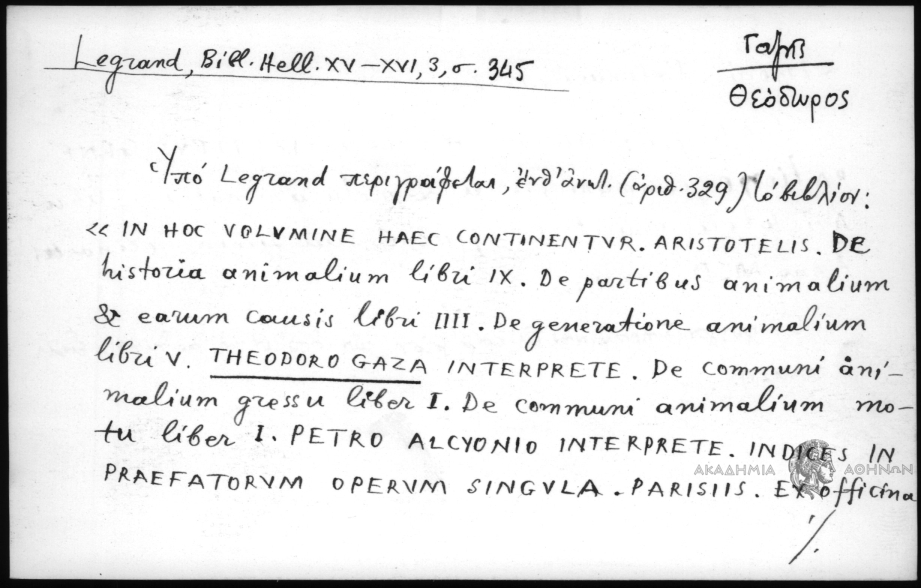 Legrand, Bibl. Hell. XV–XVI, 3, σ. 345
Γαζῆς
Θεόδωρος
Ὑπό Legrand περιγράφεται, ἐνθ' ἀνωτ. (ἀριθ. 329) τό βιβλίον:
« IN HOC VOLVMINE HAEC CONTINENTVR. ARISTOTELIS. DE
historia animalium libri IX. De partibus animalium
& earum causis libri IIII. De generatione animalium
libri V. THEODORO GAZA INTERPRETE. De communi ani-
malium gressu liber I. De communi animalium mo-
tu liber I. PETRO ALCYONIO INTERPRETE. INDICES IN
ΑΚΑΔΗΜΙΑ ΑΘΗΝΩΝ
PRAEFATORVM OPERVM SINGVLA. PARISIIS. Ex officina
./.